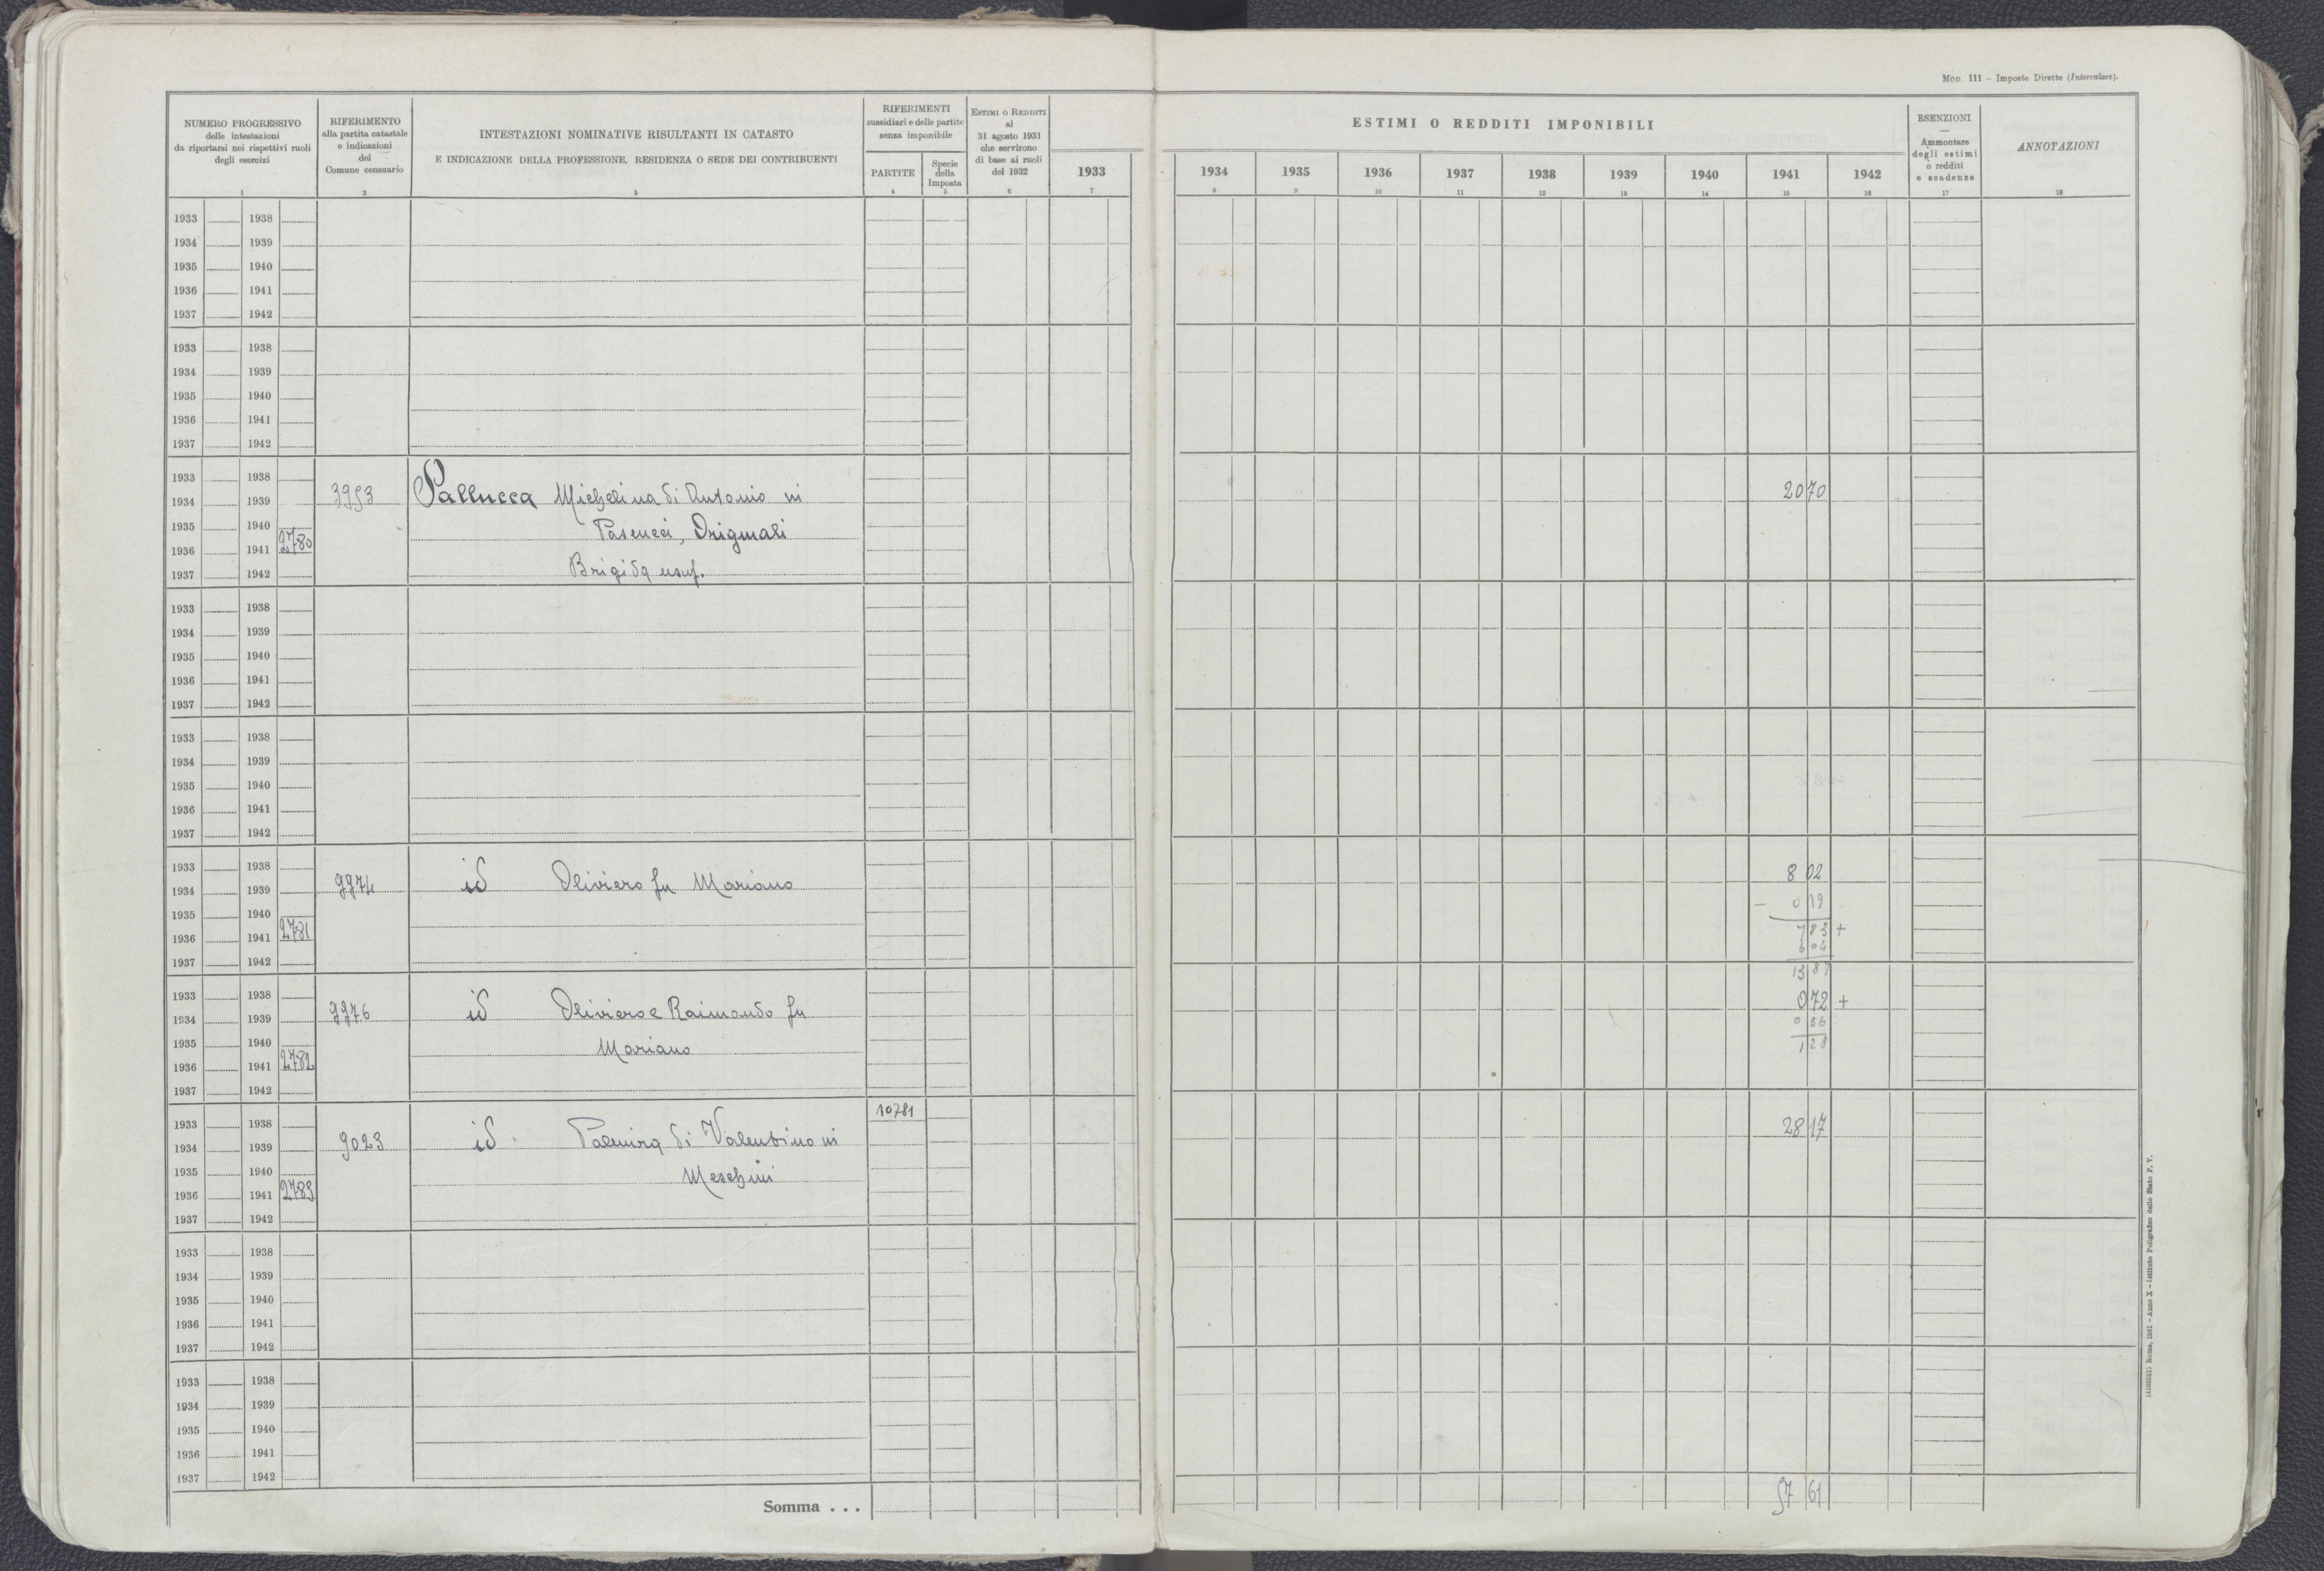 Mod. 111 – Imposte Dirette (Intercalare).
NUMERO PROGRESSIVO
delle intestazioni
da riportarsi nei rispettivi ruoli
degli esercizi
1
RIFERIMENTO
alla partita catastale
e indicazioni
del
Comune censuario
2
INTESTAZIONI NOMINATIVE RISULTANTI IN CATASTO
E INDICAZIONE DELLA PROFESSIONE, RESIDENZA O SEDE DEI CONTRIBUENTI
3
RIFERIMENTI
sussidiari e delle partite
senza imponibile
PARTITE
4
Specie
della
Imposta
5
Estimi o Redditi
al
31 agosto 1931
che servirono
di base ai ruoli
del 1932
6
ESTIMI O REDDITI IMPONIBILI
1933 1934 1935 1936 1937 1938 1939 1940 1941 1942
7 8 9 10 11 12 13 14 15 16
ESENZIONI
—
Ammontare
degli estimi
o redditi
e scadenze
17
ANNOTAZIONI
18
1933 1938
1934 1939
1935 1940
1936 1941
1937 1942
1933 1938
1934 1939
1935 1940
1936 1941
1937 1942
1933 1938
1934 1939 3953 Pallucca Michelina di Antonio in 20 70
1935 1940 Pascucci, Originali
1936 1941 2780
1937 1942 Brigida usuf.
1933 1938
1934 1939
1935 1940
1936 1941
1937 1942
1933 1938
1934 1939
1935 1940
1936 1941
1937 1942
1933 1938 8 02
1934 1939 9974 id Oliviero fu Mariano
1935 1940 – 0 19
1936 1941 2781 7 83 +
6 04
1937 1942
13 87
1933 1938 0 72 +
1934 1939 9976 id Oliviero e Raimondo fu
0 56
1935 1940 Mariano 1 28
1936 1941 2782
1937 1942
10781
1933 1938 28 17
1934 1939 9023 id. Palmira di Valentino in
1935 1940 Meschini
1936 1941 2783
1937 1942
1933 1938
1934 1939
1935 1940
1936 1941
1937 1942
1933 1938
1934 1939
1935 1940
1936 1941
1937 1942
Somma . . . 57 61
Roma, 1931 – Anno X – Istituto Poligrafico dello Stato P. V.